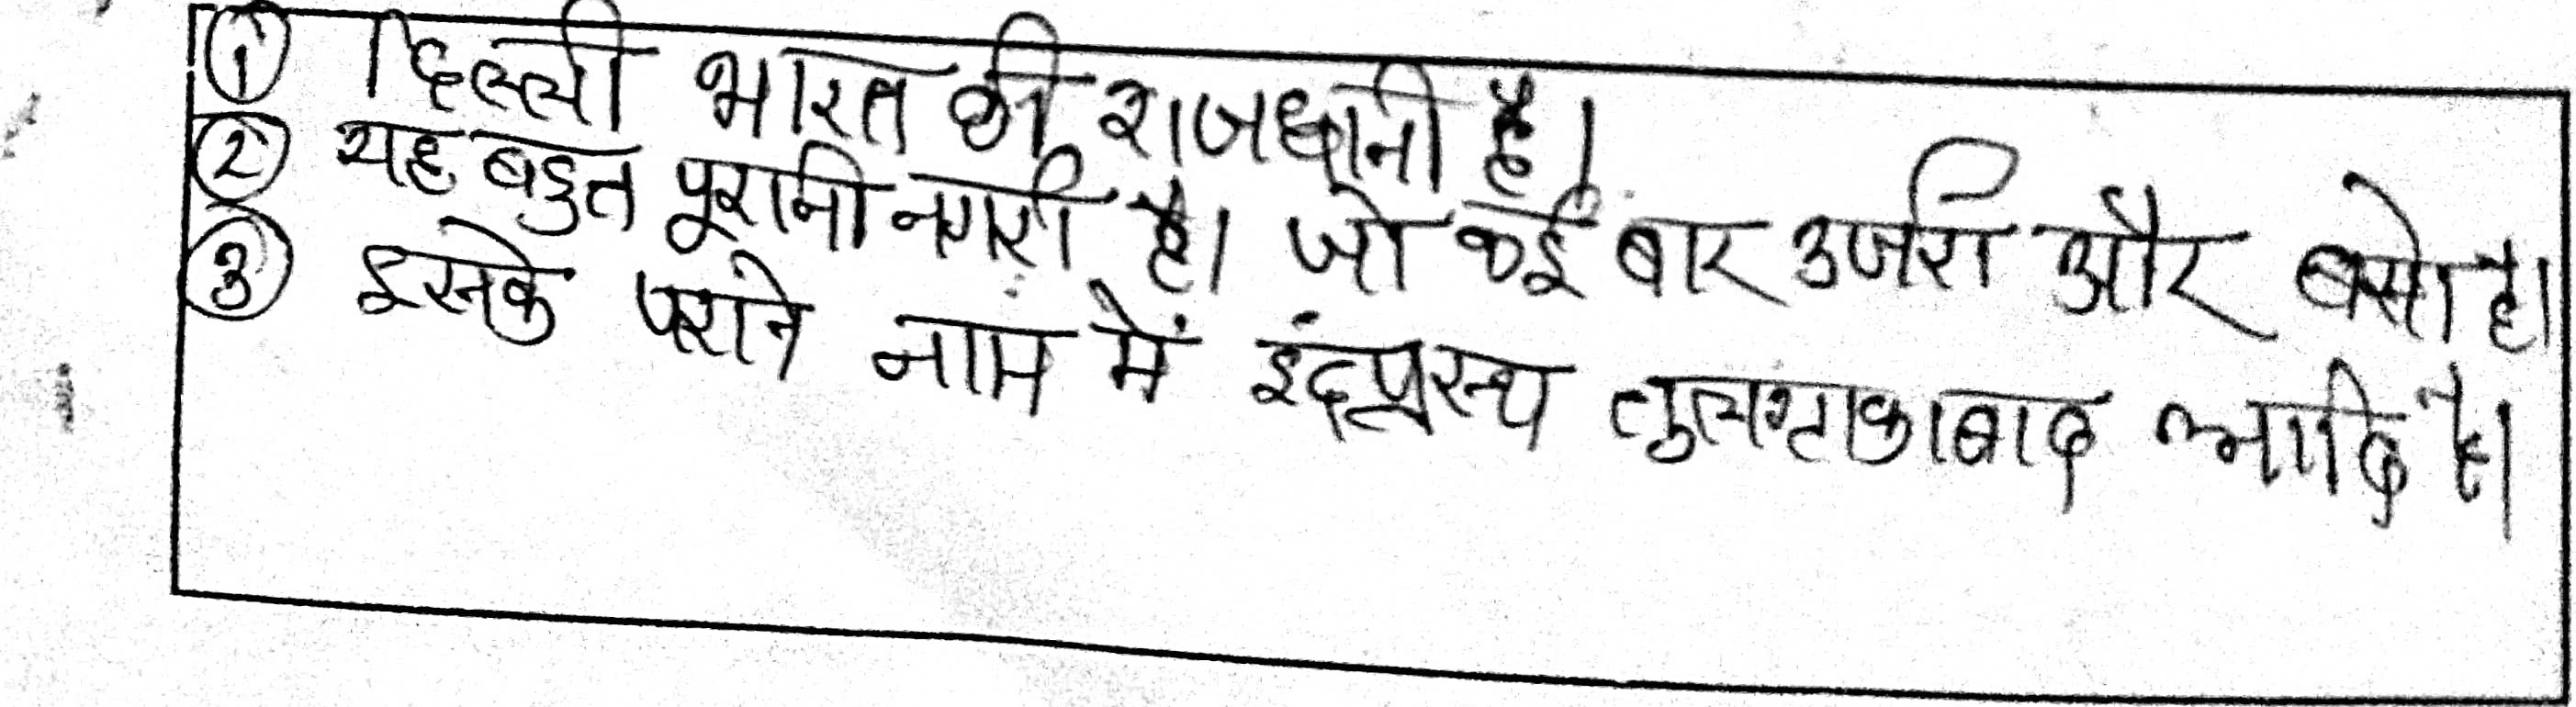 ① दिल्ली भारत की राजधानी है।
② यह बहुत पूरानी नगरी है। जो कई बार उजरी और बसी है।
③ इसके पराने नाम में इंद्रप्रस्थ तुलगाकाबाद आदि है।